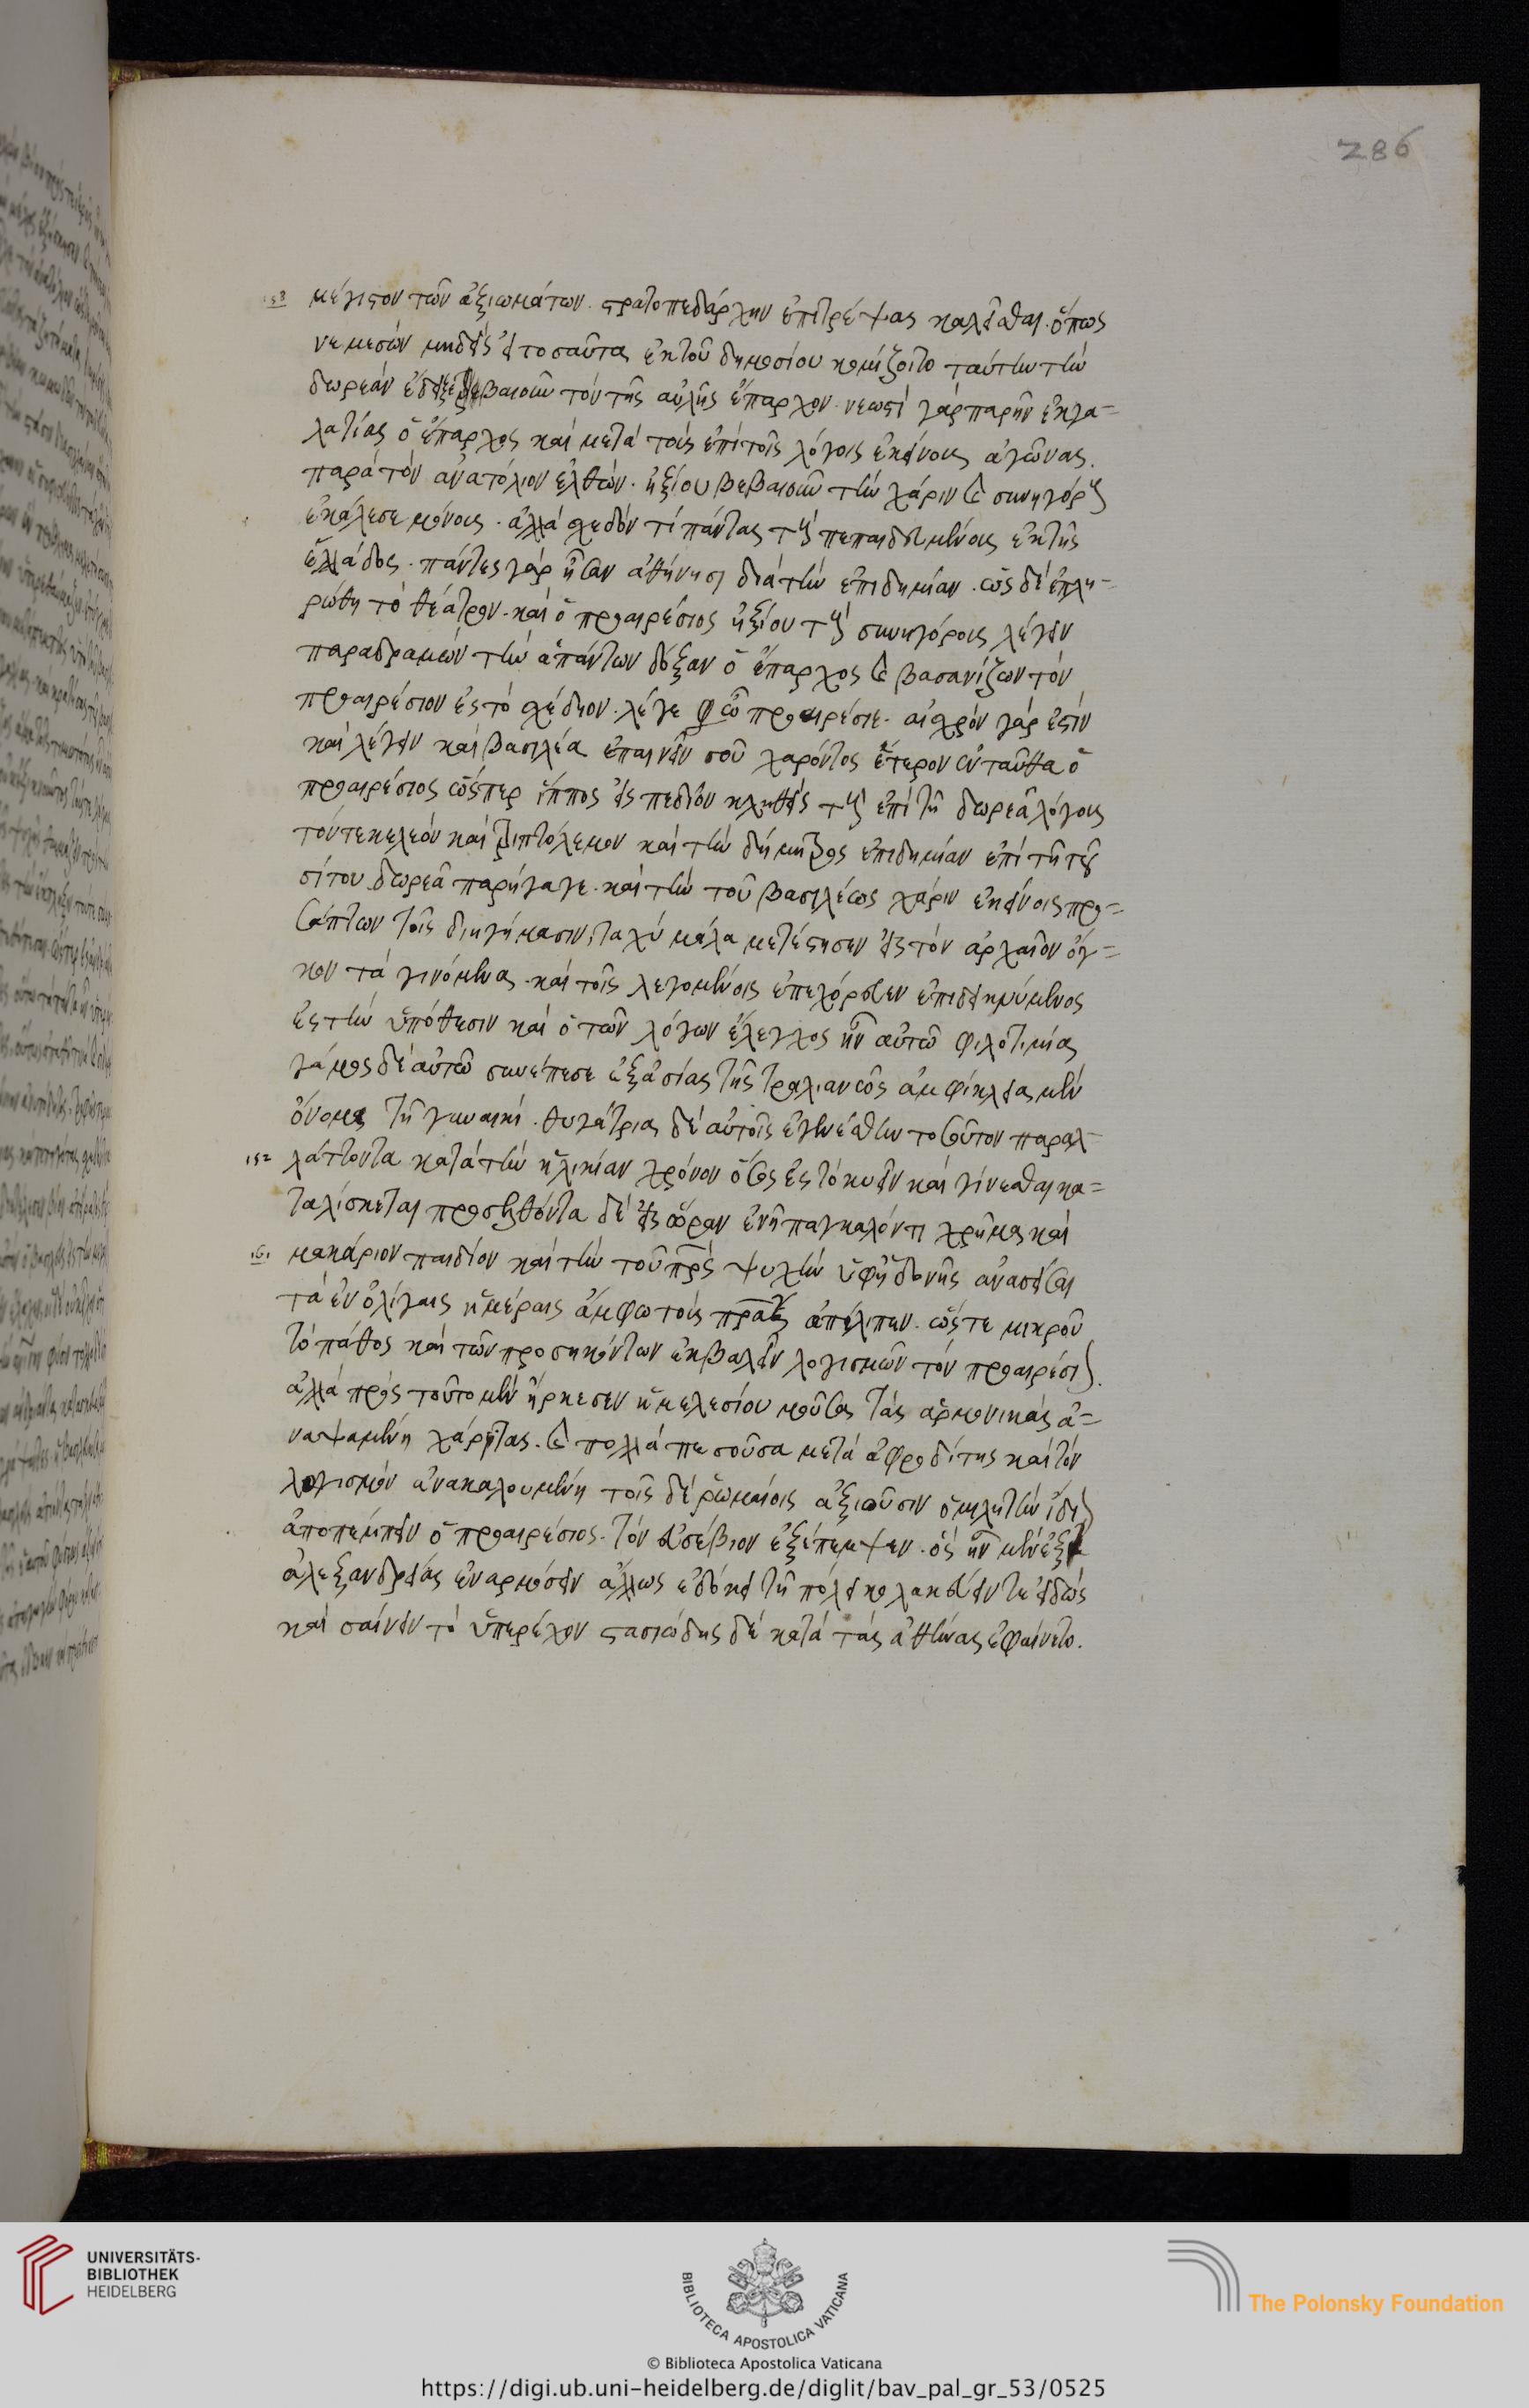 286
158 μέγιστον τῶν ἀξιωμάτων. στρατοπεδάρχην ἐπιτρέψας καλεῖσθαι. ὅπως
νεμεσών μηδεὶς εἰ τοσαῦτα ἐκ τοῦ δημοσίου κομίζοιτο ταύτην τὴν
δωρεὰν βεβαιοῦν τὸν τῆς αὐλῆς ἔπαρχον. νεωστὶ γὰρ παρῆν ἐκ γα=
λατίας ὁ ἔπαρχος καὶ μετὰ τοὺς ἐπὶ τοῖς λόγοις ἐκείνους ἀγῶνας.
παρὰ τὸν ἀνατόλιον ἐλθών. ἠξίου βεβαιοῦν τὴν χάριν καὶ συνηγόρους
ἐκάλεσε μόνους. ἀλλὰ σχεδόν τι πάντας τοὺς πεπαιδευμένους ἐκ τῆς
ἑλλάδος. πάντες γὰρ ἦσαν ἀθήνησι διὰ τὴν ἐπιδημίαν. ὡς δὲ ἐπλη=
ρώθη τὸ θέατρον. καὶ ὁ προαιρέσιος ἠξίου τοὺς συνηγόρους λέγειν
παραδραμὼν τὴν ἁπάντων δόξαν ὁ ἔπαρχος καὶ βασανίζων τὸν
προαιρέσιον ἐς τὸ σχέδιον. λέγε φ ὦ προαιρέσιε. αἰσχρὸν γάρ ἐστιν
καὶ λέγειν καὶ βασιλέα ἐπαινεῖν σοῦ παρόντος ἕτερον ἐνταῦθα ὁ
προαιρέσιος ὥσπερ ἵππος εἰς πεδίον κληθεὶς τοὺς ἐπὶ τῇ δωρεᾷ λόγους
τόν τε κελεὸν καὶ τριπτόλεμον καὶ τὴν δήμητρος ἐπιδημίαν ἐπὶ τῇ τοῦ
σίτου δωρεᾷ παρήγαγε. καὶ τὴν τοῦ βασιλέως χάριν ἐκείνοις προ=
σάπτων τοῖς διηγήμασιν, ταχὺ μάλα μετέστησεν εἰς τὸν ἀρχαῖον ὄγ=
κον τὰ γινόμενα. καὶ τοῖς λεγομένοις ἐπεχόρευεν ἐπιδεικνύμενος
ἐς τὴν ὑπόθεσιν καὶ ὁ τῶν λόγων ἔλεγχος ἦν αὐτῷ φιλοτιμία
γάμος δὲ αὐτῷ συνέπεσε ἐξ ἀσίας τῆς τραλιανῶς ἀμφίκλεια μὲν
ὄνομα τῇ γυναικί. θυγάτρια δὲ αὐτοῖς ἐγενέσθην τοσοῦτον παραλ=
152 λάττοντα κατὰ τὴν ἡλικίαν χρόνον ὅσος ἐς τὸ κυεῖν καὶ γίνεσθαι κα=
ταλίσκεται προελθόντα δὲ εἰς ὥραν ἐν ᾗ πάγκαλόν τι χρῆμα καὶ
161 μακάριον παιδίον καὶ τὴν τοῦ πρς ψυχὴν ὑφ' ἡδονῆς ἀνασείσαν
τα ἐν ὀλίγαις ἡμέραις ἄμφω τοὺς πρας ἀπέλιπεν. ὥστε μικροῦ
τὸ πάθος καὶ τῶν προσηκόντων ἐκβαλεῖν λογισμῶν τὸν προαιρέσιον.
ἀλλὰ πρὸς τοῦτο μὲν ἤρκεσεν ἡ μελεσίου μοῦσα τὰς ἁρμονικὰς ἀ=
ναψαμένη χάριτας. καὶ πολλὰ πεσοῦσα μετὰ ἀφροδίτης καὶ τὸν
λογισμὸν ἀνακαλουμένη τοῖς δὲ ῥωμαίοις ἀξιοῦσιν ὁμιλητὴν ἴδιον
ἀποπέμπειν ὁ προαιρέσιος. τὸν εὐσέβιον ἐξέπεμψεν. ὃς ἦν μὲν ἐξ
ἀλεξανδρείας ἐναρμόσειν ἄλλως ἐδόκει τῇ πόλει κολακεύειν τε εἰδὼς
καὶ σαίνειν τὸ ὑπερέχον στασιώδης δὲ κατὰ τὰς ἀθήνας ἐφαίνετο.
UNIVERSITÄTS-
BIBLIOTHEK
HEIDELBERG
BIBLIOTECA APOSTOLICA VATICANA
The Polonsky Foundation
© Biblioteca Apostolica Vaticana
https://digi.ub.uni-heidelberg.de/diglit/bav_pal_gr_53/0525